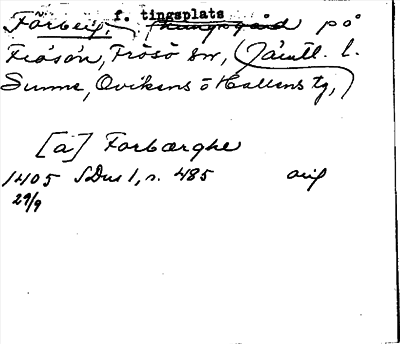 f. tingsplats
Förberg, på
Frösön, Frösö sn, (Jämtl. l.
Sunne, Ovikens o Hallens tg,)
[a] Forbærghe
1405 SDns 1, s. 485 orig
29/9